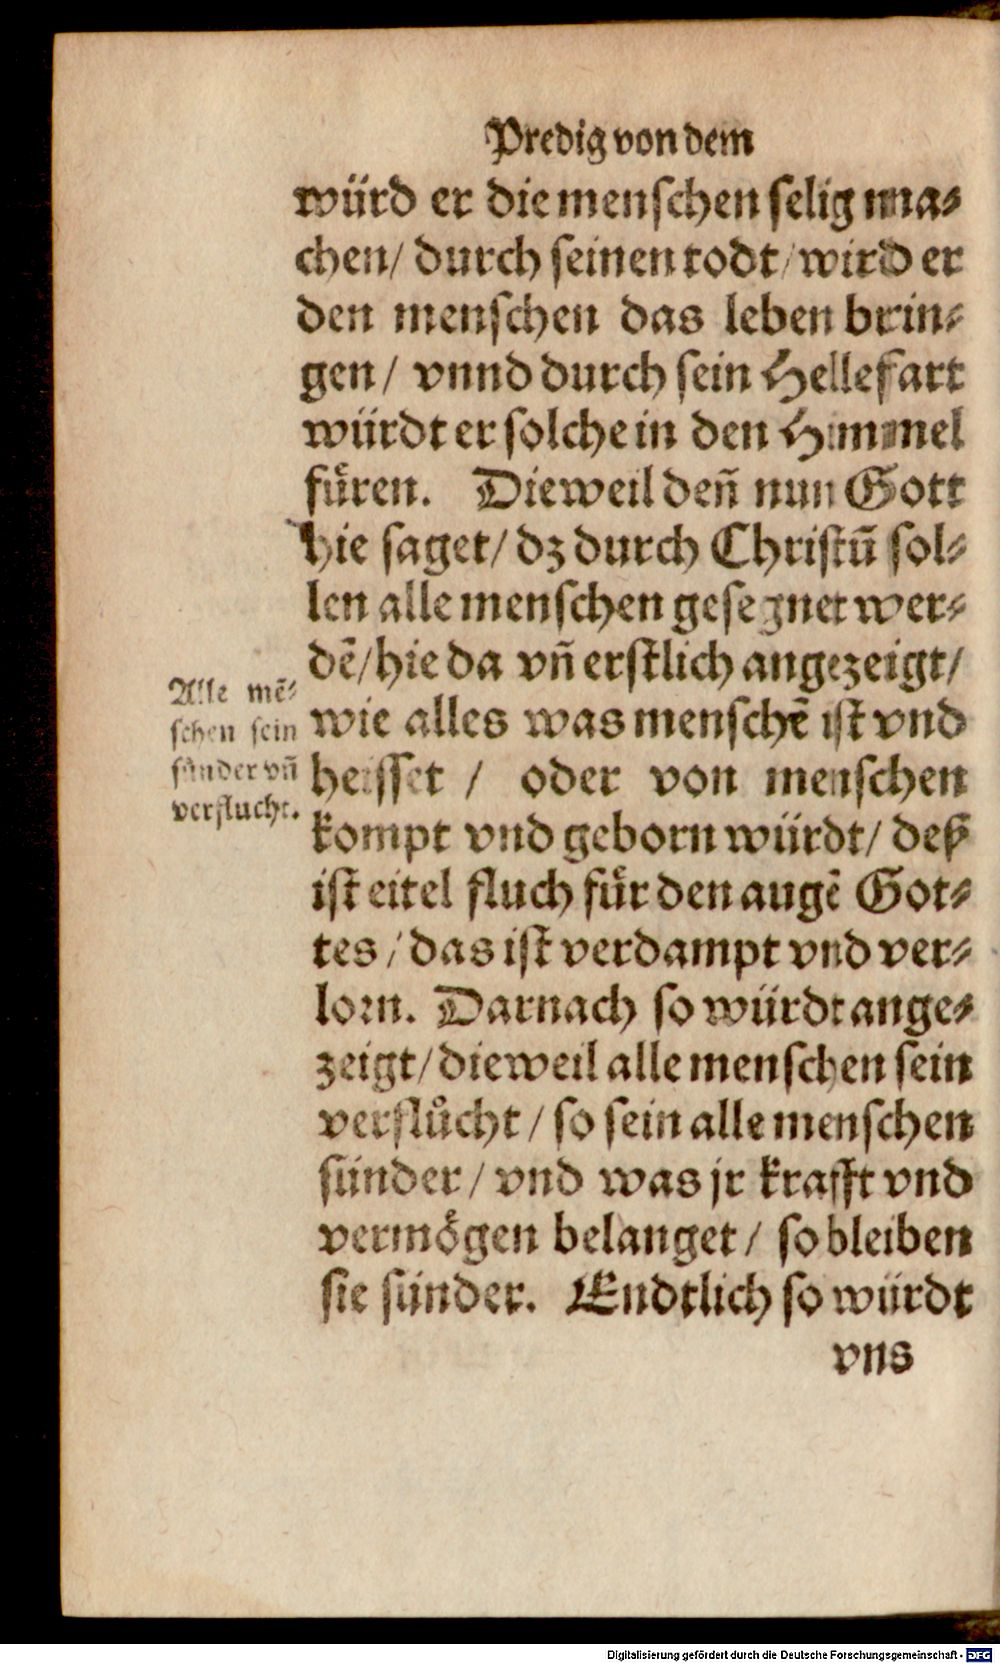 Predig von dem
würd er die menschen selig ma⸗
chen/ durch seinen todt/ wird er
den menschen das leben brin⸗
gen/ vnnd durch sein Hellefart
würdt er solche in den Himmel
fuͤren. Dieweil deñ nun Gott
hie saget/ dz durch Christũ sol⸗
len alle menschen gesegnet wer⸗
dẽ/ hie da vñ erstlich angezeigt/
wie alles was menschẽ ist vnd
heisset / oder von menschen
kompt vnd geborn würdt/ deß
ist eitel fluch fuͤr den augẽ Got⸗
tes/ das ist verdampt vnd ver⸗
lorn. Darnach so würdt ange⸗
zeigt/ dieweil alle menschen sein
verflůcht/ so sein alle menschen
sünder/ vnd was jr krafft vnd
vermoͤgen belanget/ so bleiben
sie sünder. Endtlich so würdt
vns
Alle mẽ⸗
schen sein
sünder vñ
verflucht.
Digitalisierung gefördert durch die Deutsche Forschungsgemeinschaft - DFG